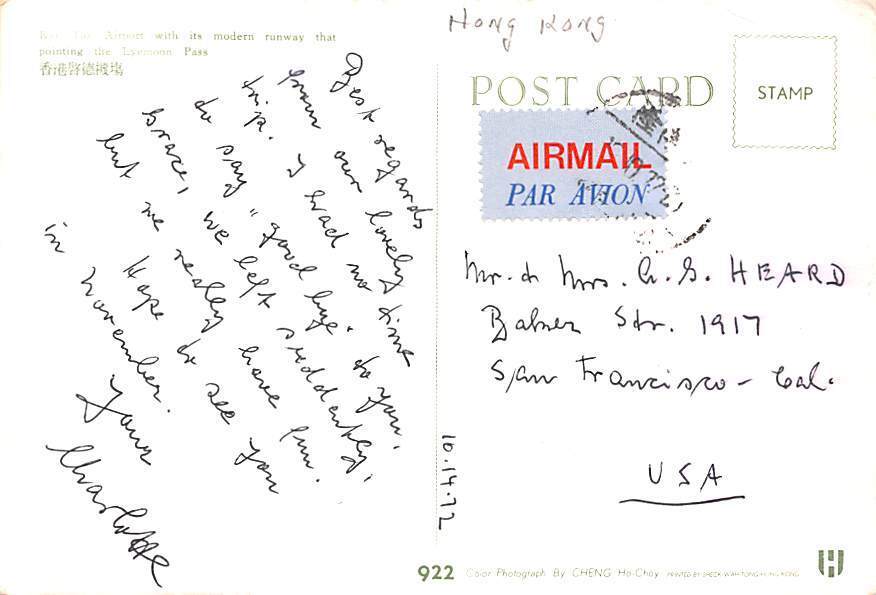 Hong Kong
Kai Tak Airport with its modern runway that
pointing the Lyemoon Pass
香港啓德機塲
POST CARD
STAMP
AIRMAIL
PAR AVION
Best regards
from our lovely
trip. I had no time
to say "good bye" to you,
Grace, we left suddenly,
but we really have fun.
Hope to see you
in November.
Yours
Charlotte
Mr. & Mrs. G. HEARD
Str. 1917
San Francisco - Cal.
USA
10.14.72
922 Color Photograph By CHENG Ho-Choy PRINTED BY SHECK WAH TONG HONG KONG
H